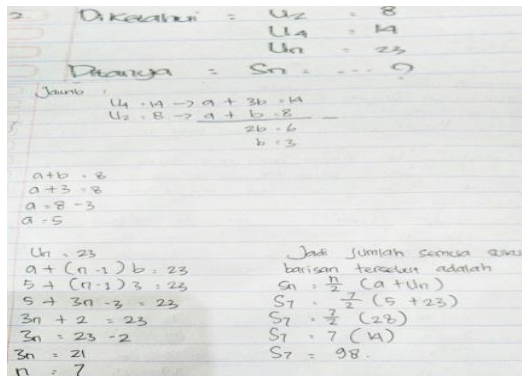 2. Diketahui : U2 = 8
U4 = 14
Un = 23
Ditanya : Sn = .... ?
Jawab :
U4 = 14 -> a + 3b = 14
U2 = 8 -> a + b = 8 -
2b = 6
b = 3
a+b = 8
a+3 = 8
a = 8 - 3
a = 5
Un = 23
a + (n-1) b = 23
5 + (n-1) 3 = 23
5 + 3n - 3 = 23
3n + 2 = 23
3n = 23 - 2
3n = 21
n = 7
Jadi jumlah semua suku
barisan tersebut adalah
Sn = n/2 (a + Un)
S7 = 7/2 (5 + 23)
S7 = 7/2 (28)
S7 = 7 (14)
S7 = 98.